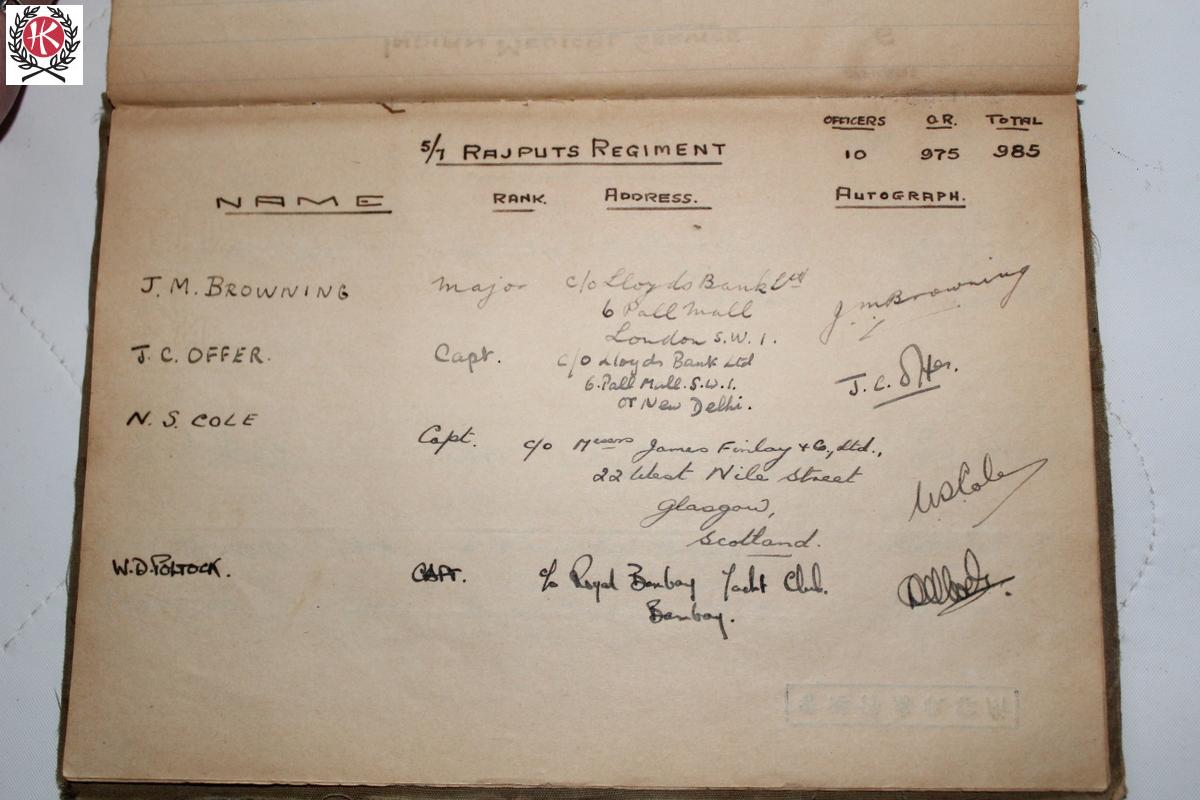 HK
INDIAN MEDICAL SERVICE
OFFICERS O.R. TOTAL
5/7 RAJPUTS REGIMENT 10 975 985
NAME RANK. ADDRESS. AUTOGRAPH.
J. M. BROWNING Major c/o Lloyds Bank Ltd J M Browning
6 Pall Mall
London S.W.1.
J. C. OFFER. Capt. c/o Lloyds Bank Ltd J. C. Offer.
6. Pall Mall. S.W.1.
or New Delhi.
N. S. COLE Capt. c/o Messrs James Finlay & Co., Ltd., N S Cole
22 West Nile Street
Glasgow,
Scotland.
W. D. CAPT. c/o Royal Bombay Yacht Club.
Bombay.